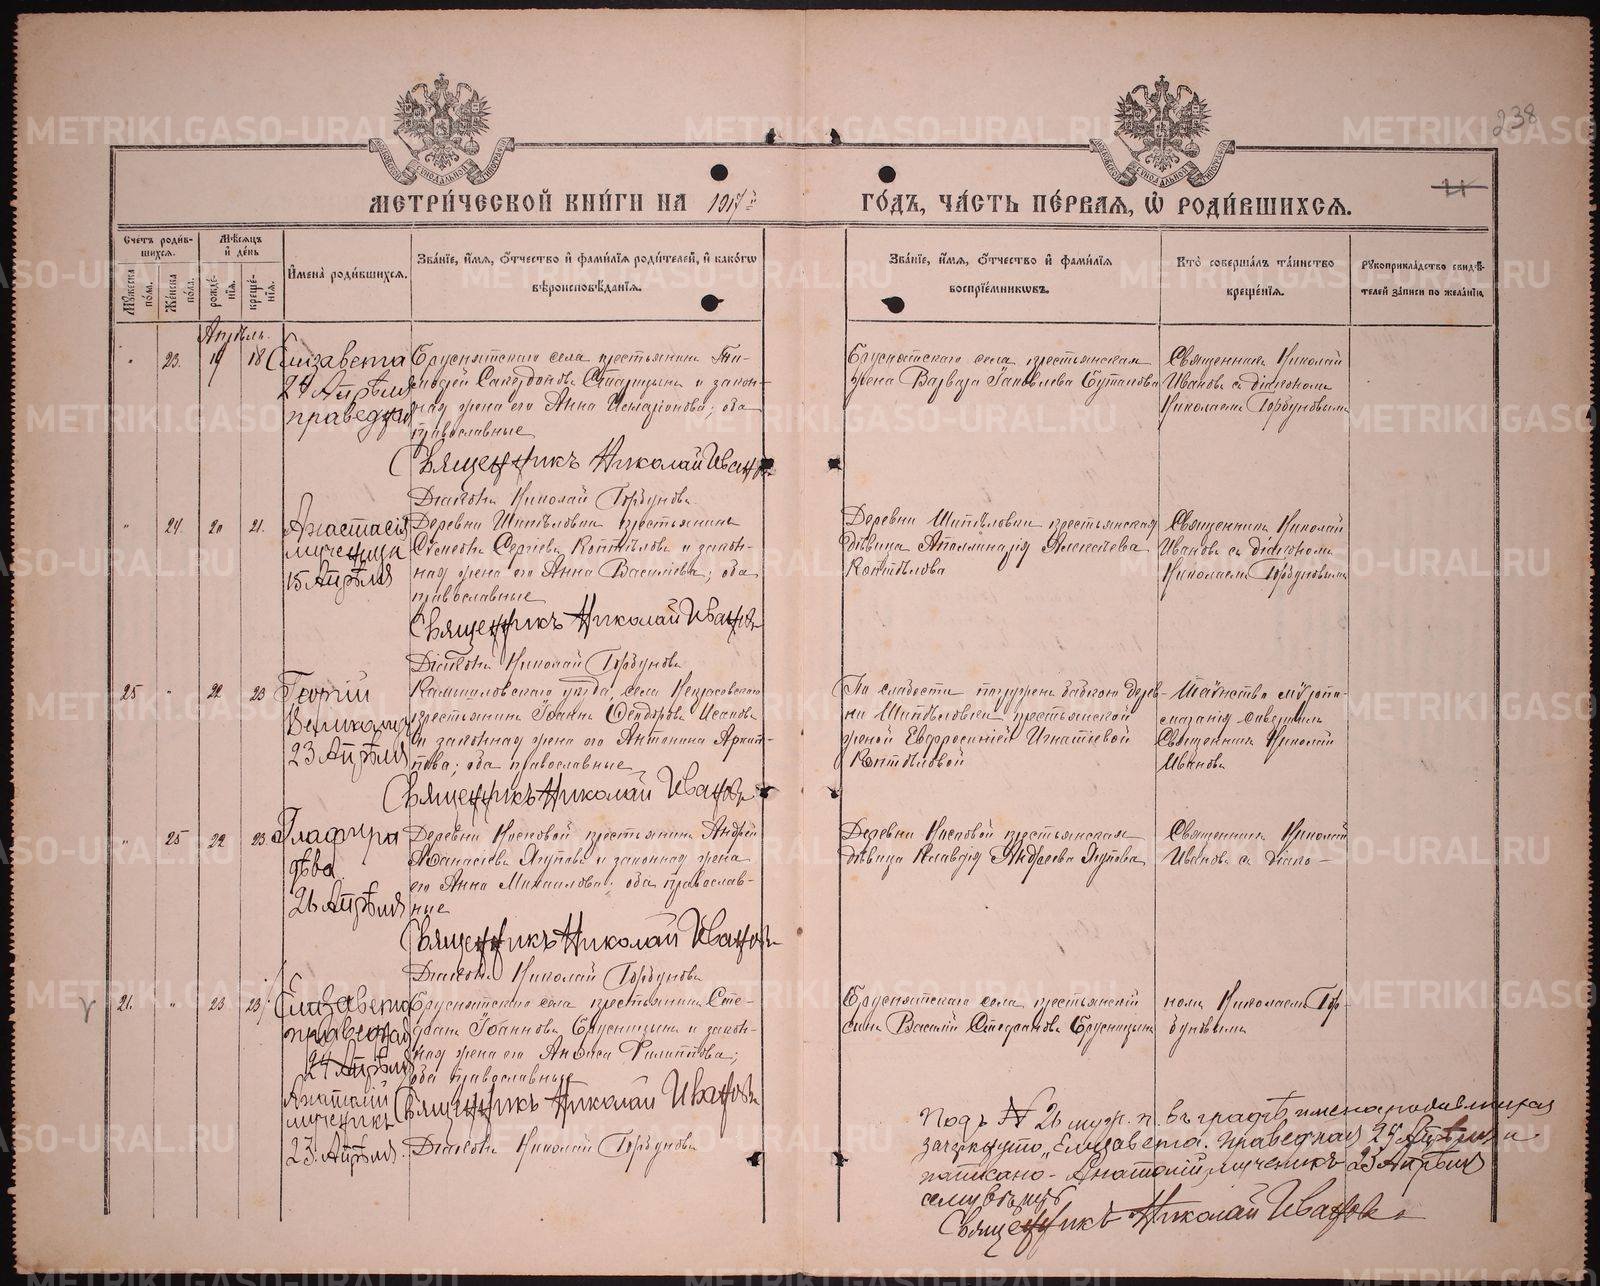 238
МЕТРИ́ЧЕСКОЙ КНИ́ГИ НА 1917й ГО́ДЪ, ЧА́СТЬ ПЕ́РВАЯ, Ѡ РОДИ́ВШИХСЯ.
Счетъ роди́в-
шихся.
Мѣ́сяцъ
и҆ де́нь
Мꙋжеска
по́ла.
Же́нска
по́ла.
рожде́-
нїя.
креще́-
нїя.
И҆мена̀ роди́вшихся.
Зва́нїе, и҆́мя, ѻ҆́тчество и҆ фами́лїя роди́телей, и҆ како́гѡ
вѣроисповѣ́данїя.
Зва́нїе, и҆́мя, ѻ҆́тчество и҆ фами́лїя
воспрїе́мникѡвъ.
Кто̀ соверша́лъ та́инство
креще́нїя.
Рꙋкоприкла́дство свидѣ́-
телей за́писи по жела́нїю.
Апрѣль.
" 23. 18
Елизавета
24 Апрѣля
праведная
Бруснятскаго села крестьянинъ Ти-
мофей Старицынъ и закон-
ная жена его Анна; оба
православные
Священникъ Николай Ивановъ
Діаконъ Николай Горбуновъ
Бруснятскаго села крестьянская
жена Варвара Іаковлева Буталова
Священникъ Николай
Ивановъ съ діакономъ
Николаемъ Горбуновымъ
" 24. 20 21.
Анастасія
мученица
15 Апрѣля
Деревни Шипѣловки крестьянинъ
Сергіевъ Коптѣловъ и закон-
ная жена его Анна Василіева; оба
православные
Священникъ Николай Ивановъ
Діаконъ Николай Горбуновъ
Деревни Шипѣловки крестьянская
дѣвица Аполлинарія Алексѣева
Коптѣлова
Священникъ Николай
Ивановъ съ діакономъ
Николаемъ Горбуновымъ
25 " 22 23
Георгій
Великомуч.
23 Апрѣля
Камышловскаго уѣзда, села Некрасовскаго
крестьянинъ Іоаннъ Ѳеодоровъ Исаковъ
и законная жена его Антонина Архип-
пова; оба православные
Священникъ Николай Ивановъ
По слабости погруженъ бабкою дерев-
ни Шипѣловки крестьянской
женой Евфросиніей Игнатіевой
Коптѣловой
Таинство мѵропо-
мазанія совершилъ
Священникъ Николай
Ивановъ
" 25 22 23
Глафира
дѣва
26 Апрѣля
Деревни Носковой крестьянинъ Андрей
Аѳанасіевъ Ягуповъ и законная жена
его Анна Михаилова; оба православ-
ные
Священникъ Николай Ивановъ
Діаконъ Николай Горбуновъ
Деревни Носковой крестьянская
дѣвица Клавдія Андреева Ягупова
Священникъ Николай
Ивановъ съ діако-
26. " 23 23
Елизавета
праведная
24 Апрѣля
Анатолій
мученикъ
23 Апрѣля.
Бруснятскаго села крестьянинъ Сте-
фанъ Іоанновъ Брусницынъ и закон-
ная жена его Анфиса Филиппова;
оба православные
Священникъ Николай Ивановъ
Діаконъ Николай Горбуновъ
Бруснятскаго села, крестьянскій
сынъ Василій Стефановъ Брусницынъ
номъ Николаемъ Гор-
буновымъ
Подъ № 26 муж. п. въ графѣ имена родившихся
зачеркнуто „Елизавета праведная 24 Апрѣля и
написано - Анатолій мученикъ 23 Апрѣля
Священникъ Николай Ивановъ